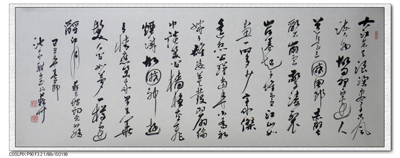 大江东去浪淘尽千古风
流人物故垒西边人
道是三国周郎赤壁
乱石崩云惊涛裂
岸卷起千堆雪江山如
画一时多少豪杰
遥想公瑾当年小乔初
嫁了雄姿英发羽扇纶
巾谈笑间樯橹灰飞
烟灭故国神游
多情应笑我早生华
发人生如梦一樽还
酹江月
COOLPIX P90 F3.2 1/68s ISO198